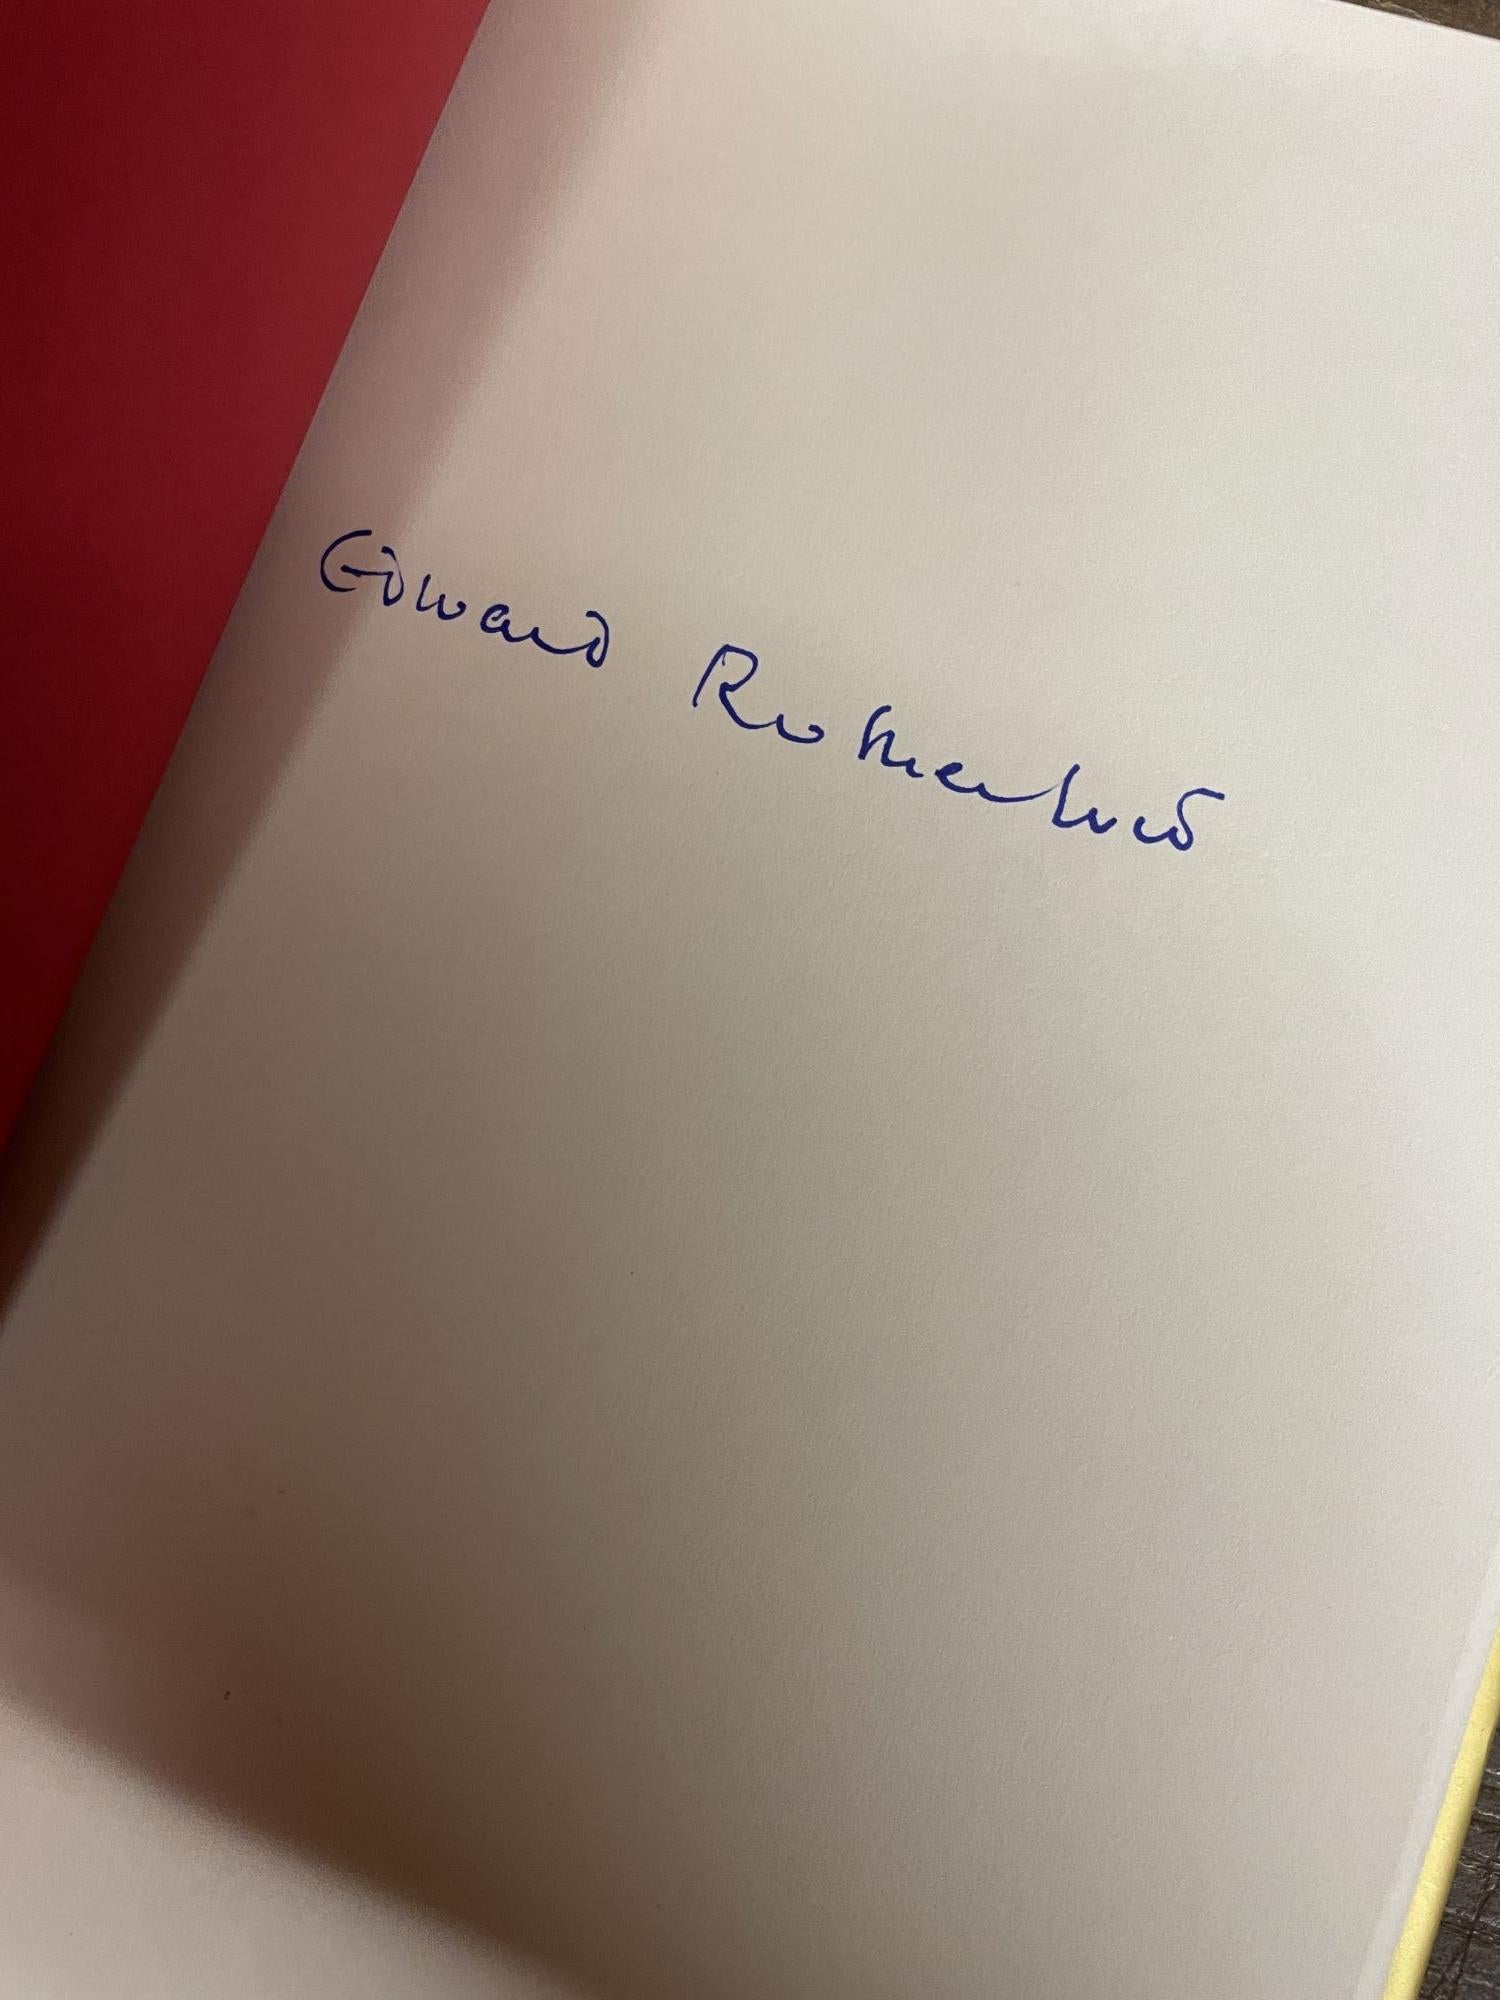 Edward Rutherfurd